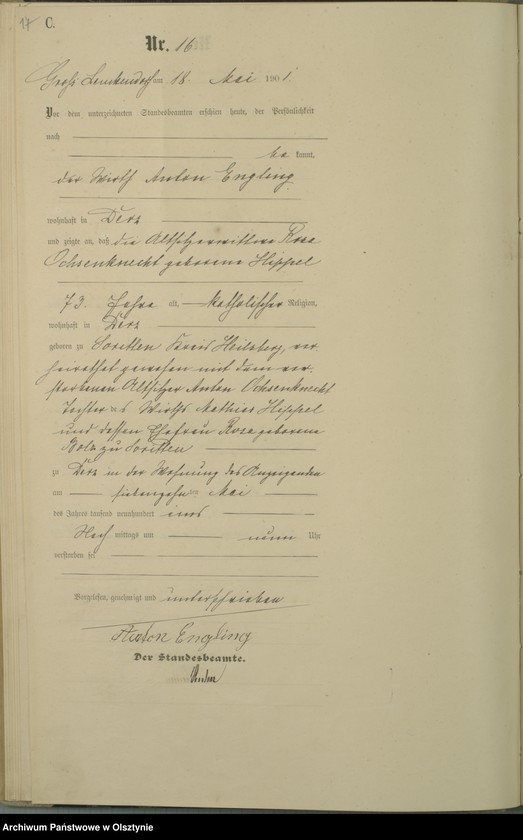 17 C.
Nr. 16
Groß Lemkendorf am 18. Mai 1901.
Vor dem unterzeichneten Standesbeamten erschien heute, der Persönlichkeit
nach
be kannt,
der Wirth Anton Engling
wohnhaft in Derz
und zeigte an, daß die Altsitzerwittwe Rosa
Ochsenknecht geborene Hippel
73. Jahre alt, katholischer Religion,
wohnhaft in Derz
geboren zu Soritten Kreis Heilsberg, ver-
heirathet gewesen mit dem ver-
storbenen Altsitzer Anton Ochsenknecht
Tochter des Wirths Mathias Hippel
und dessen Ehefrau Rosa geborene
zu Soritten
zu Derz in der Wohnung des Anzeigenden
am siebenzehnten Mai
des Jahres tausend neunhundert eins
Nach mittags um neun Uhr
verstorben sei.
Vorgelesen, genehmigt und unterschrieben
Anton Engling
Der Standesbeamte.
Archiwum Państwowe w Olsztynie